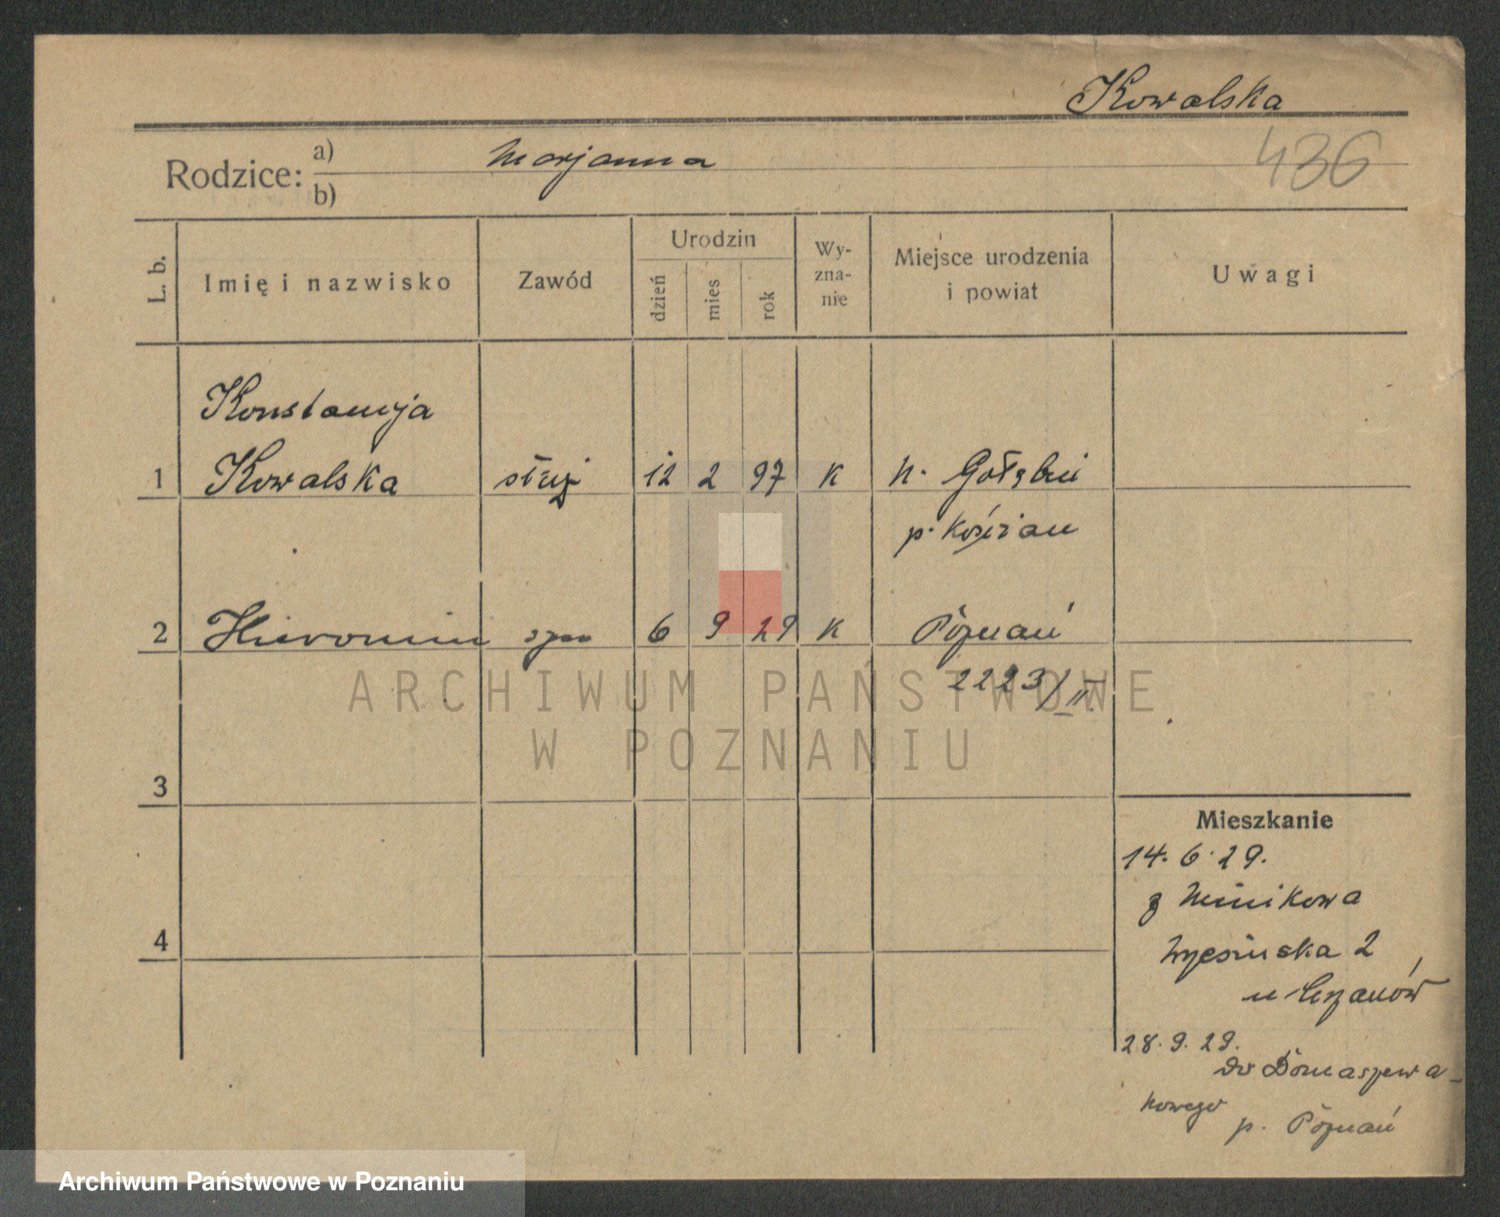 Kowalska
436
Rodzice: a) Marjanna
b)
L. b. Imię i nazwisko Zawód Urodzin dzień mies rok Wy-zna-nie Miejsce urodzenia i powiat Uwagi
Konstancja
1 Kowalska służ 12 2 97 K N. Gołębin
p. Kościan
2 Hieronim syn 6 9 29 K Poznań
2223/II
ARCHIWUM PAŃSTWOWE
W POZNANIU
3
Mieszkanie
14. 6. 29.
z Minikowa
4
2
28. 9. 29.
do Domaszewa-
nowego
p. Poznań
Archiwum Państwowe w Poznaniu